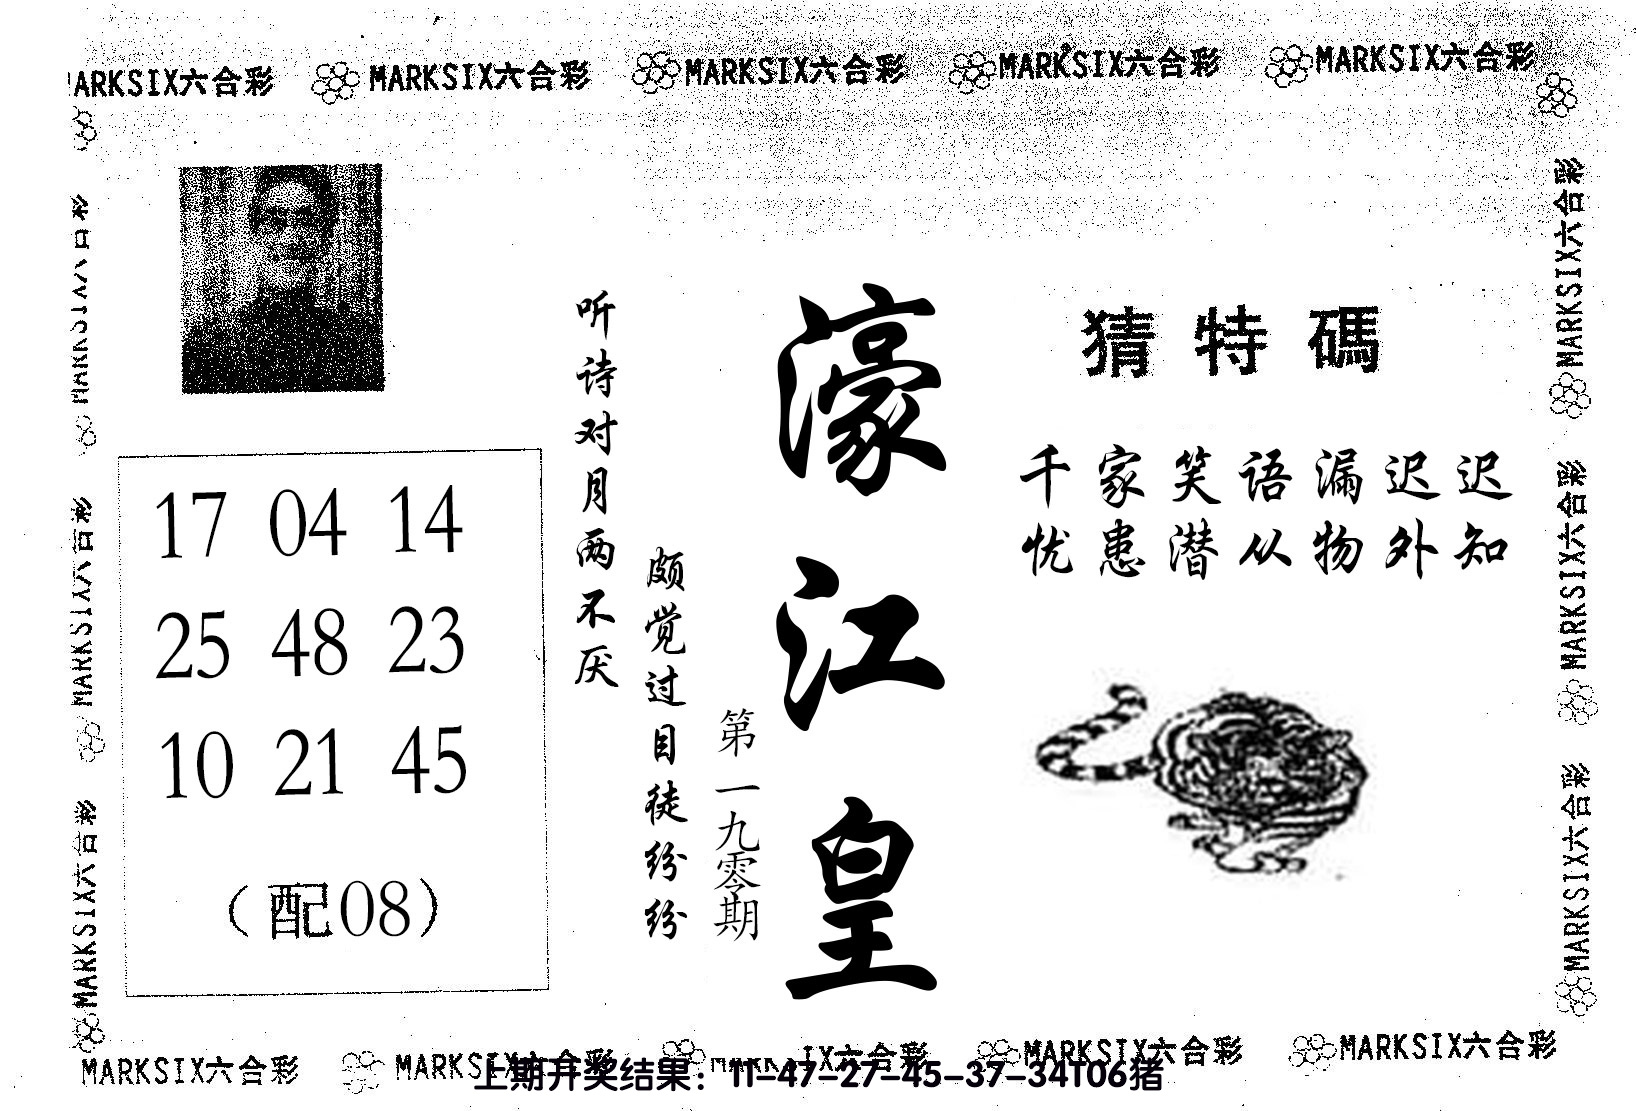 MARKSIX六合彩 MARKSIX六合彩 MARKSIX六合彩 MARKSIX六合彩 MARKSIX六合彩
MARKSIX六合彩
MARKSIX六合彩
MARKSIX六合彩
猜特碼
千家笑语漏迟迟
忧患潜从物外知
濠江皇
第一九零期
听诗对月两不厌
颇觉过目徒纷纷
17 04 14
25 48 23
10 21 45
（配08）
MARKSIX六合彩
MARKSIX六合彩
MARKSIX六合彩
MARKSIX六合彩 MARKSIX六合彩 MARKSIX六合彩 MARKSIX六合彩 MARKSIX六合彩
上期开奖结果：11-47-27-45-37-34T06猪